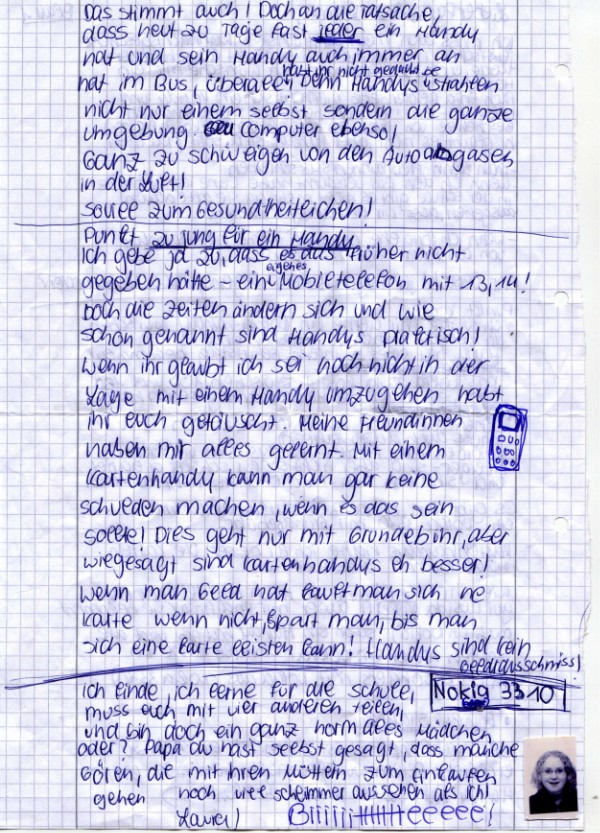 Das stimmt auch! Doch an die Tatsache,
dass heut zu Tage fast jeder ein Handy
hat und sein Handy auch immer an
habt ihr nicht gedacht
hat im Bus, überall, denn Handys strahlen
nicht nur einem selbst sondern die ganze
umgebung. Computer ebenso!
Ganz zu schweigen von den Autoabgasen
in der Luft!
soviel zum Gesundheitlichen!
Punkt zu jung für ein Handy
Ich gebe ja zu, dass es das früher nicht
gegeben hätte - ein eigenes Mobiltelefon mit 13,14!
Doch die Zeiten ändern sich und wie
schon genannt sind Handys praktisch!
Wenn ihr glaubt ich sei noch nicht in der
Lage mit einem Handy umzugehen habt
ihr euch getäuscht. Meine Freundinnen
haben mir alles gelernt. Mit einem
Kartenhandy kann man gar keine
schulden machen, wenn es das sein
sollte! Dies geht nur mit Grundgebühr, aber
wiegesagt sind Kartenhandys eh besser!
wenn man Geld hat kauft man sich ne
Karte wenn nicht, spart man, bis man
sich eine Karte leisten kann! Handys sind kein
Geldrausschmiss!
ich finde, ich lerne für die schule,
Nokia 3310
muss mich mit vier anderen teilen,
und bin doch ein ganz normales Mädchen
oder? Papa du hast selbst gesagt, dass manche
Gören, die mit ihren Müttern zum Einkaufen
gehen noch viel schlimmer aussehen als ich!
Laura!
Biiiiiittttttteeeeee!